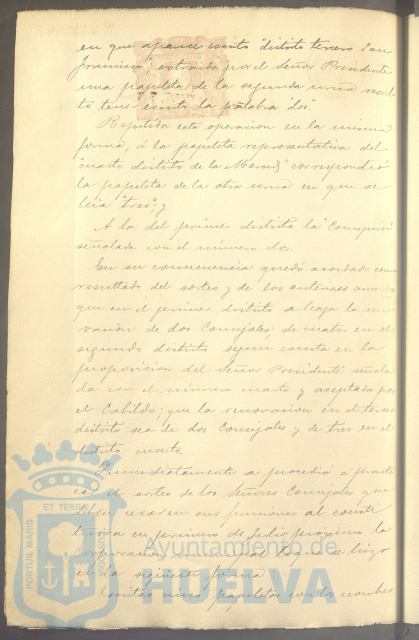 en que aparece escrito "distrito tercero San
Francisco" extraida por el Señor Presidente
una papeleta de la segunda urna resul
tó tener escrita la palabra "dos."
Repetida esta operacion en la misma
forma, á la papeleta representativa del
"cuarto distrito de la Merced" correspondió
la papeleta de la otra urna en que se
leia "tres"; y
A la del primer distrito la "Concepcion"
señalada con el número dos.
En su consecuencia quedó acordado como
resultado del sorteo y de los anteriores acuerdos
que en el primer distrito se haga la reno
vacion de dos Concejales: de cuatro en el
segundo distrito segun consta en la
proposicion del Señor Presidente señala
da con el número cuarto y aceptada por
el Cabildo; que la renovacion en el tercer
distrito sea de dos Concejales y de tres en el
distrito cuarto.
Inmediatamente se procedió á practi
car el sorteo de los Señores Concejales que
deben cesar en sus funciones al consti
tuirse en primero de Julio proximo la
Corporacion que se hizo
en la siguiente forma
Escritas cinco papeletas con los nombres
PORTUS MARIS ET TERRAE CUSTODIA
Ayuntamiento de
HUELVA